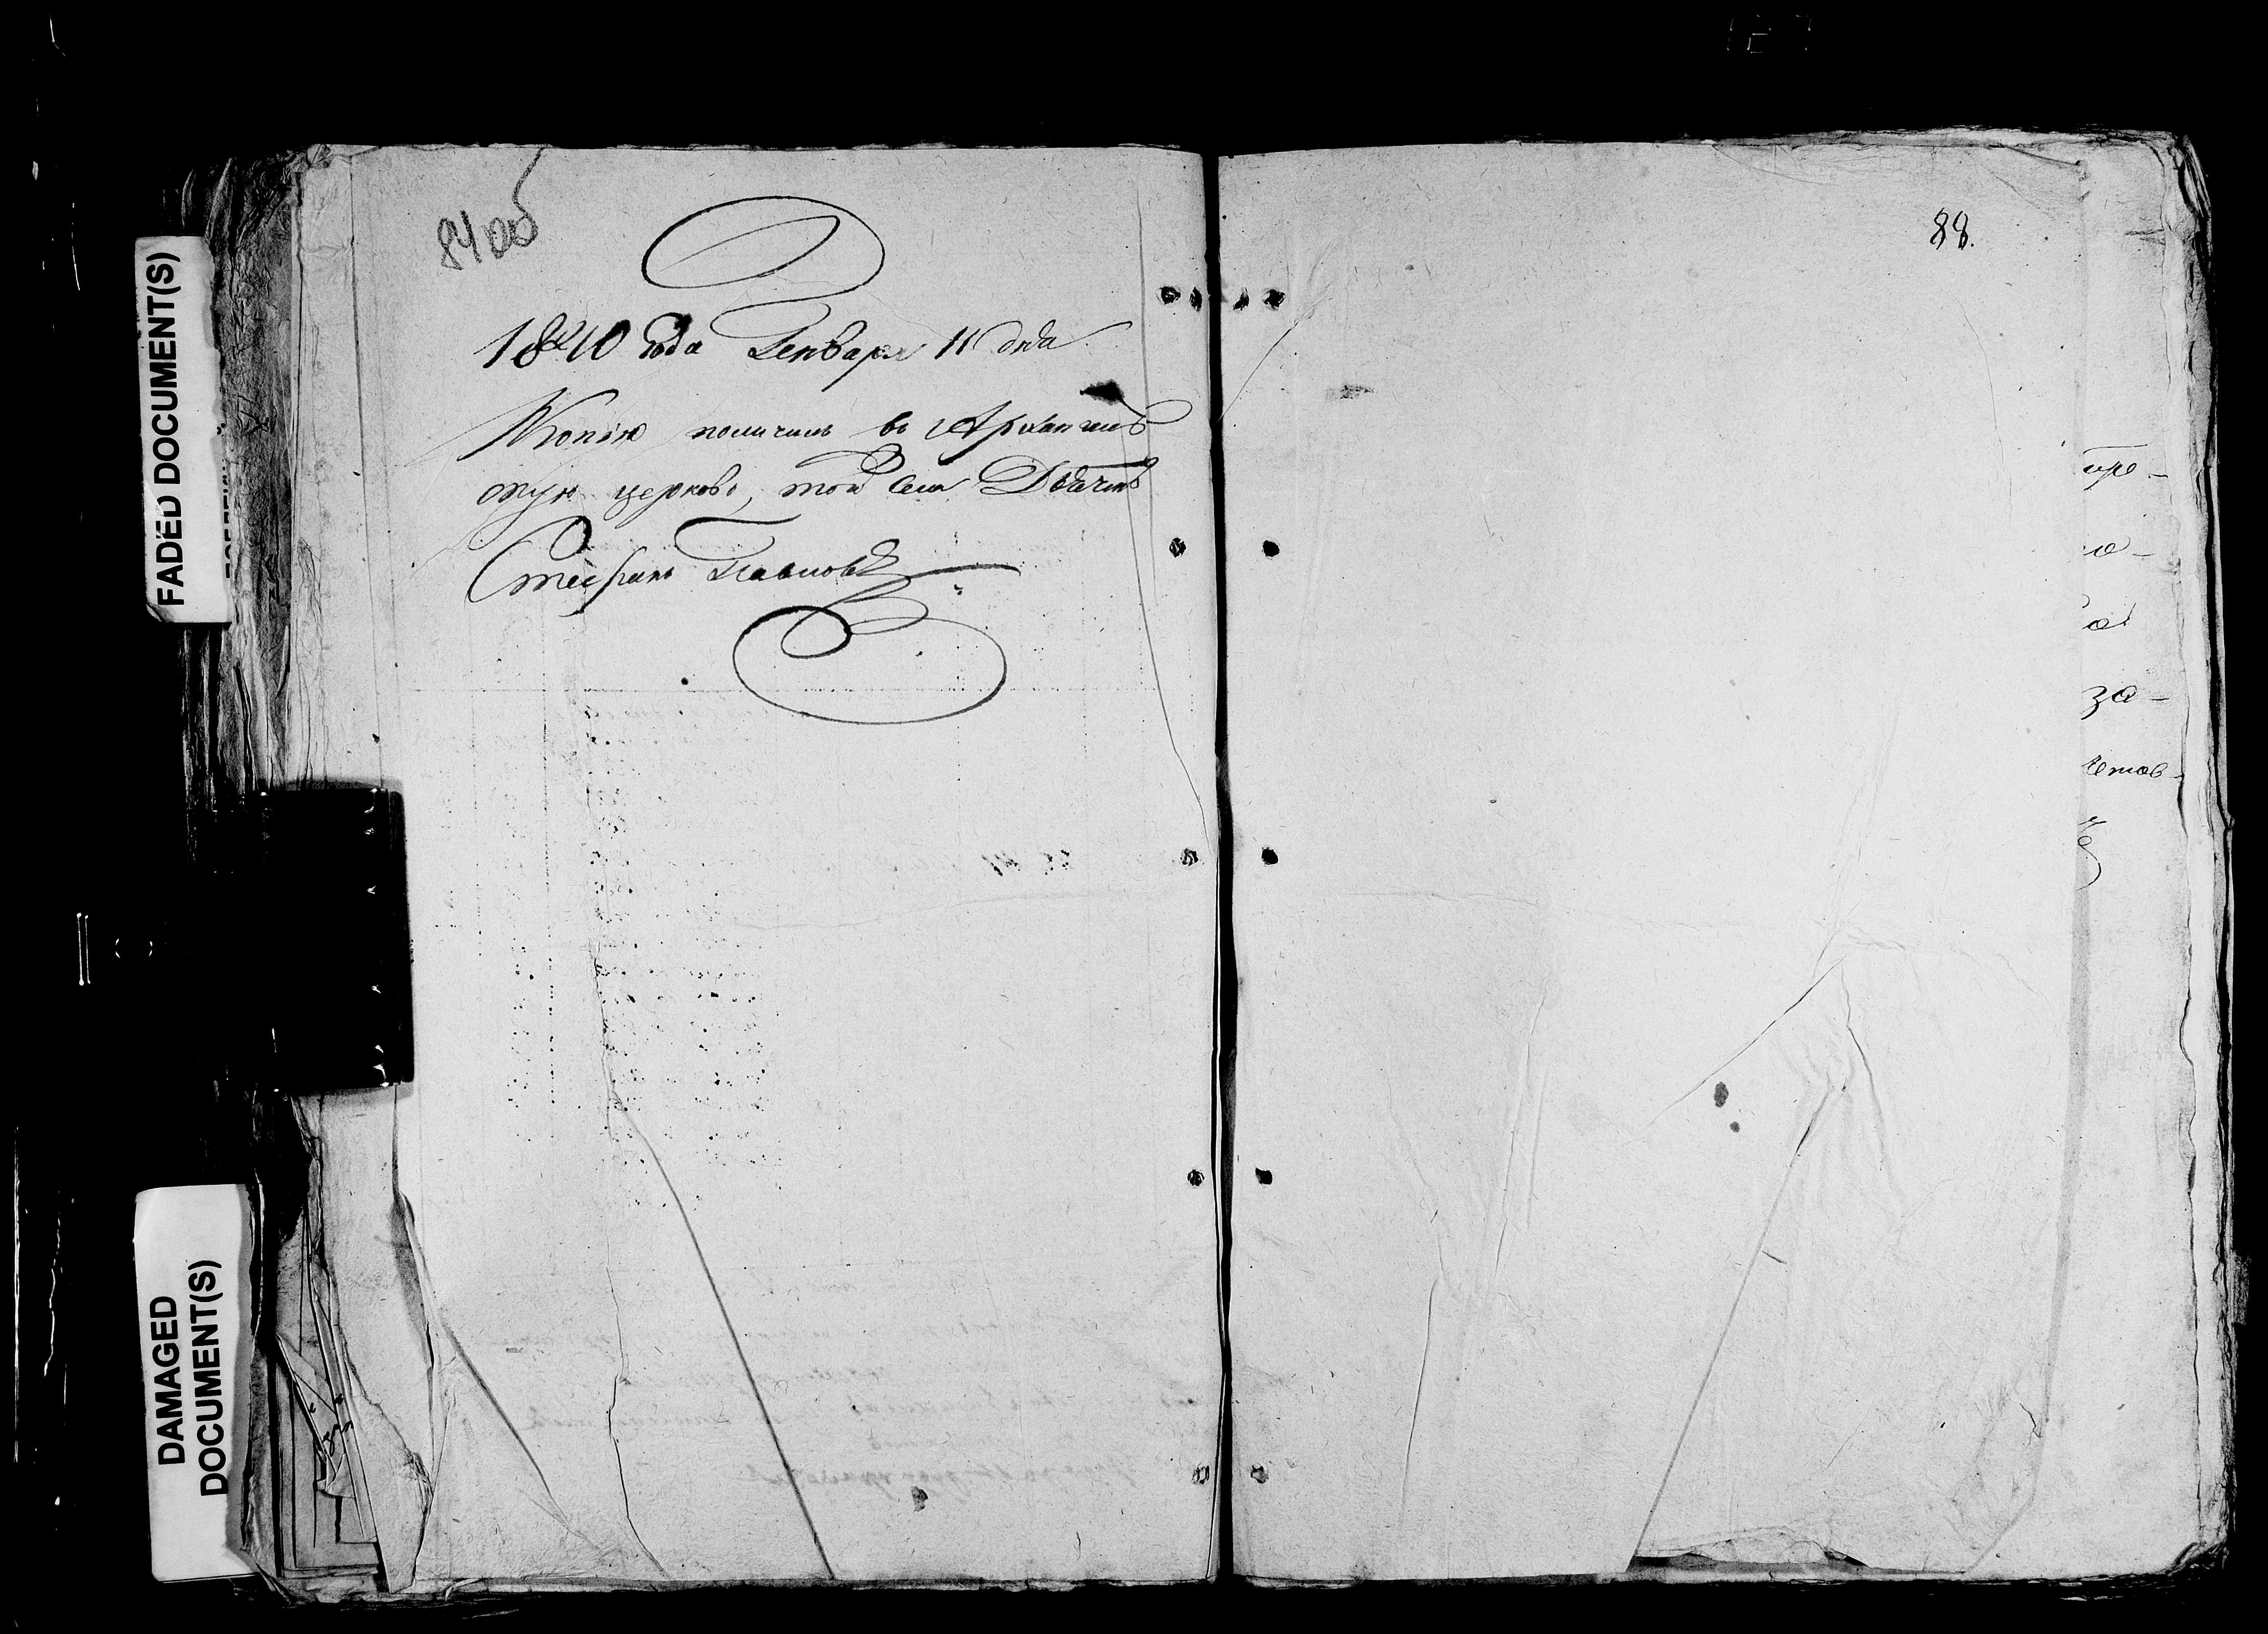 84об
1840 года Генваря 11 дня
Копію получилъ въ Архангелъ
скую церковь, той села Дьячекъ
Стефанъ Павловъ
88.
за-
FADED DOCUMENT(S)
DAMAGED
DOCUMENT(S)